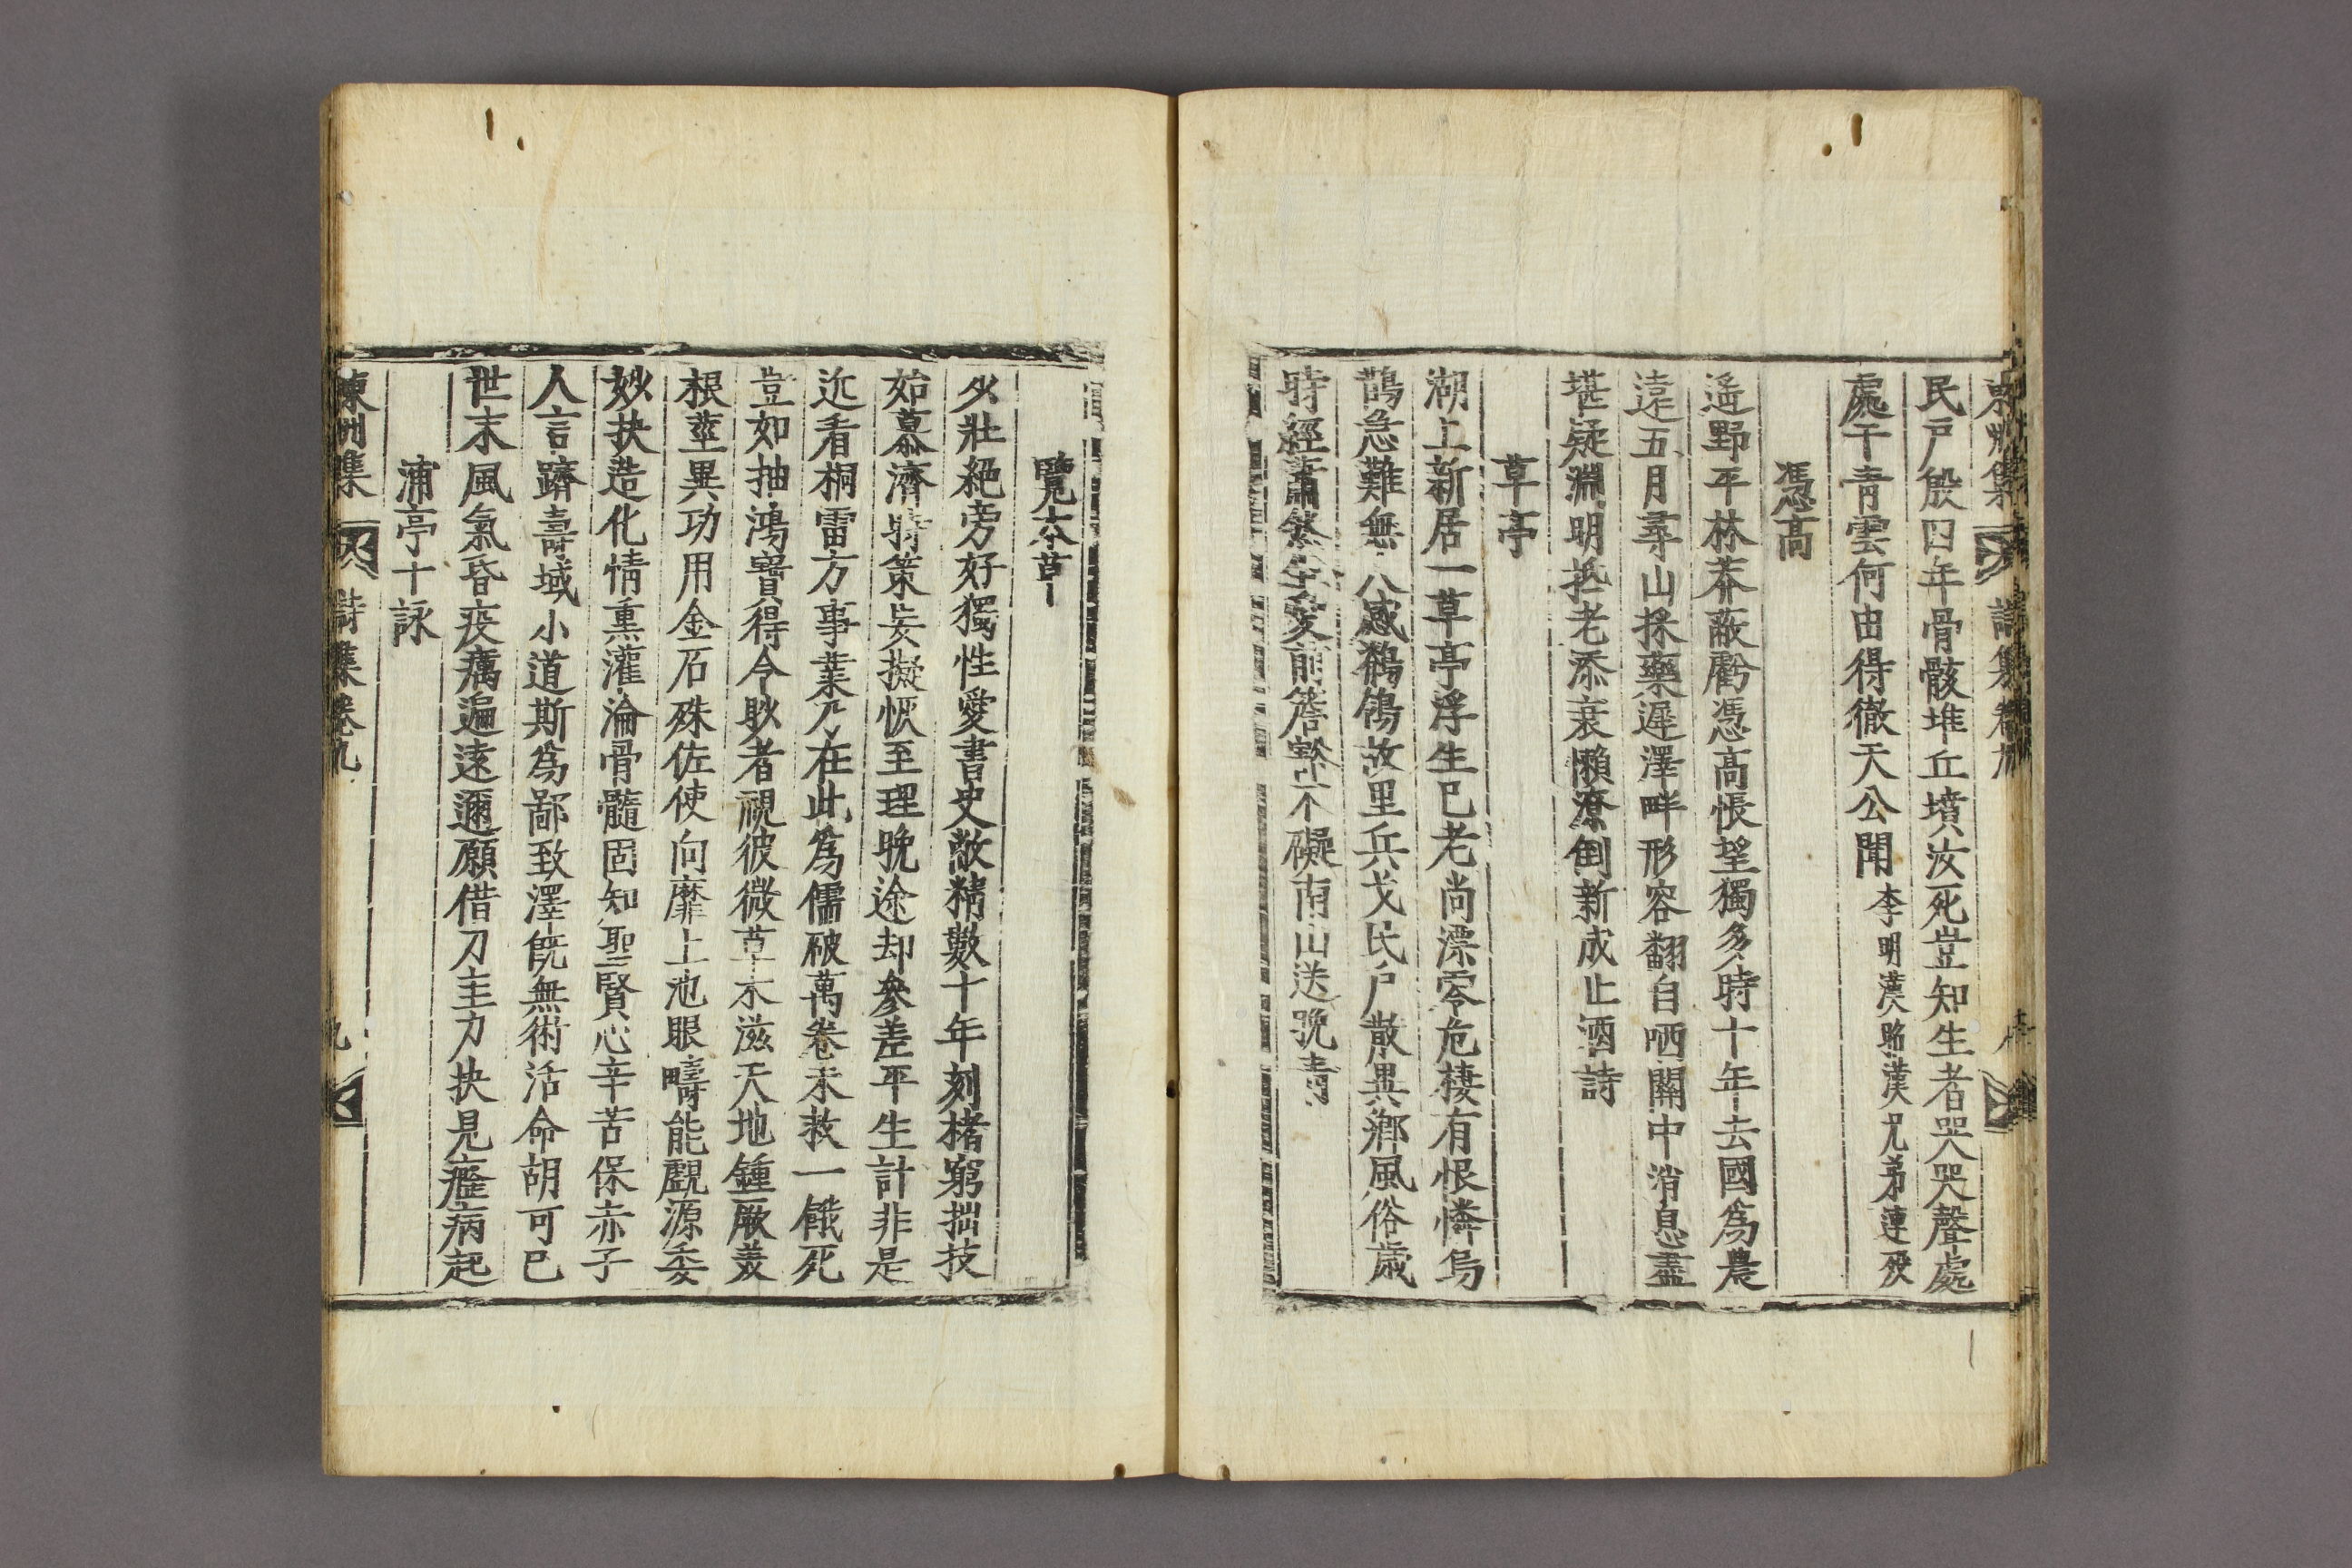 東州集 詩集卷九
民戶殷四年骨骸堆丘墳汝死豈知生者哭哭聲處
處干青雲何由得徹天公聞 李明漢昭漢兄弟連歿
憑高
遥野平林莽蔽虧憑高悵望獨多時十年去國爲農
遠五月尋山採藥遲澤畔形容翻自哂關中消息盡
堪疑淵明抵老添衰懶潦倒新成止酒詩
草亭
湖上新居一草亭浮生已老尚漂零危棲有恨憐烏
鵲急難無 感鶺鴒故里兵戈民戶散異鄉風俗歲
時經蕭然 愛前簷豁不礙南山送晚青
覽本草
少壯絕旁好獨性愛書史敝精數十年刻楮窮拙技
始慕濟時策妄擬恢至理晚途却參差平生計非是
近看桐雷方事業乃在此爲儒破萬卷未救一餓死
豈如抽鴻寶得令眇者視彼微草木滋天地鍾厥美
根莖異功用金石殊佐使向靡上池眼疇能覰源委
妙抉造化情熏灌淪骨髓固知聖賢心辛苦保赤子
人言躋壽域小道斯爲鄙致澤旣無術活命胡可已
世末風氣昏疫癘遍遠邇願借刀圭力抉見癃病起
浦亭十詠
東州集 詩集卷九 九